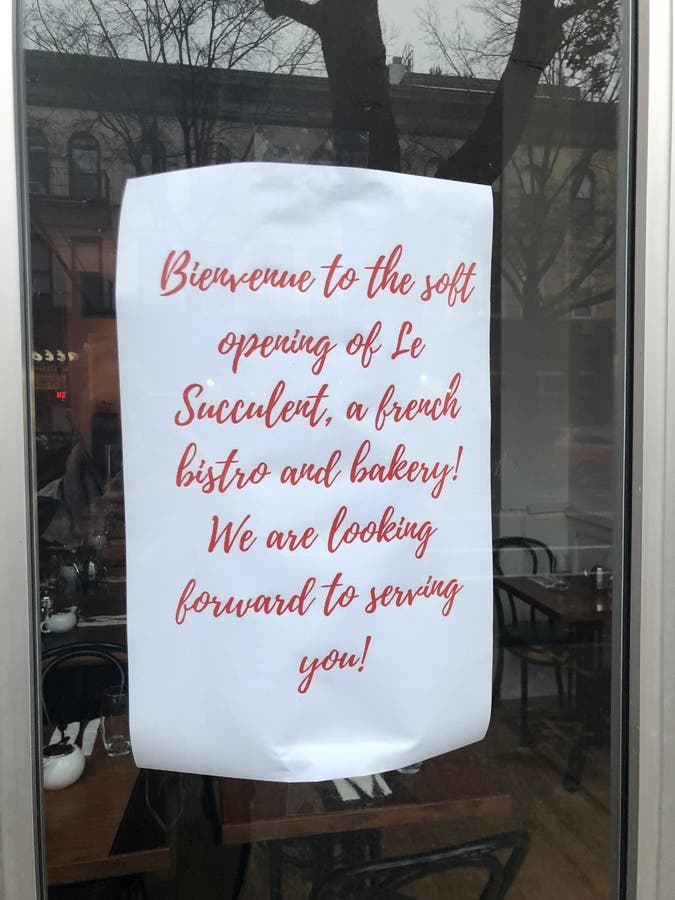 Bienvenue to the soft
opening of Le
Succulent, a french
bistro and bakery!
We are looking
forward to serving
you!